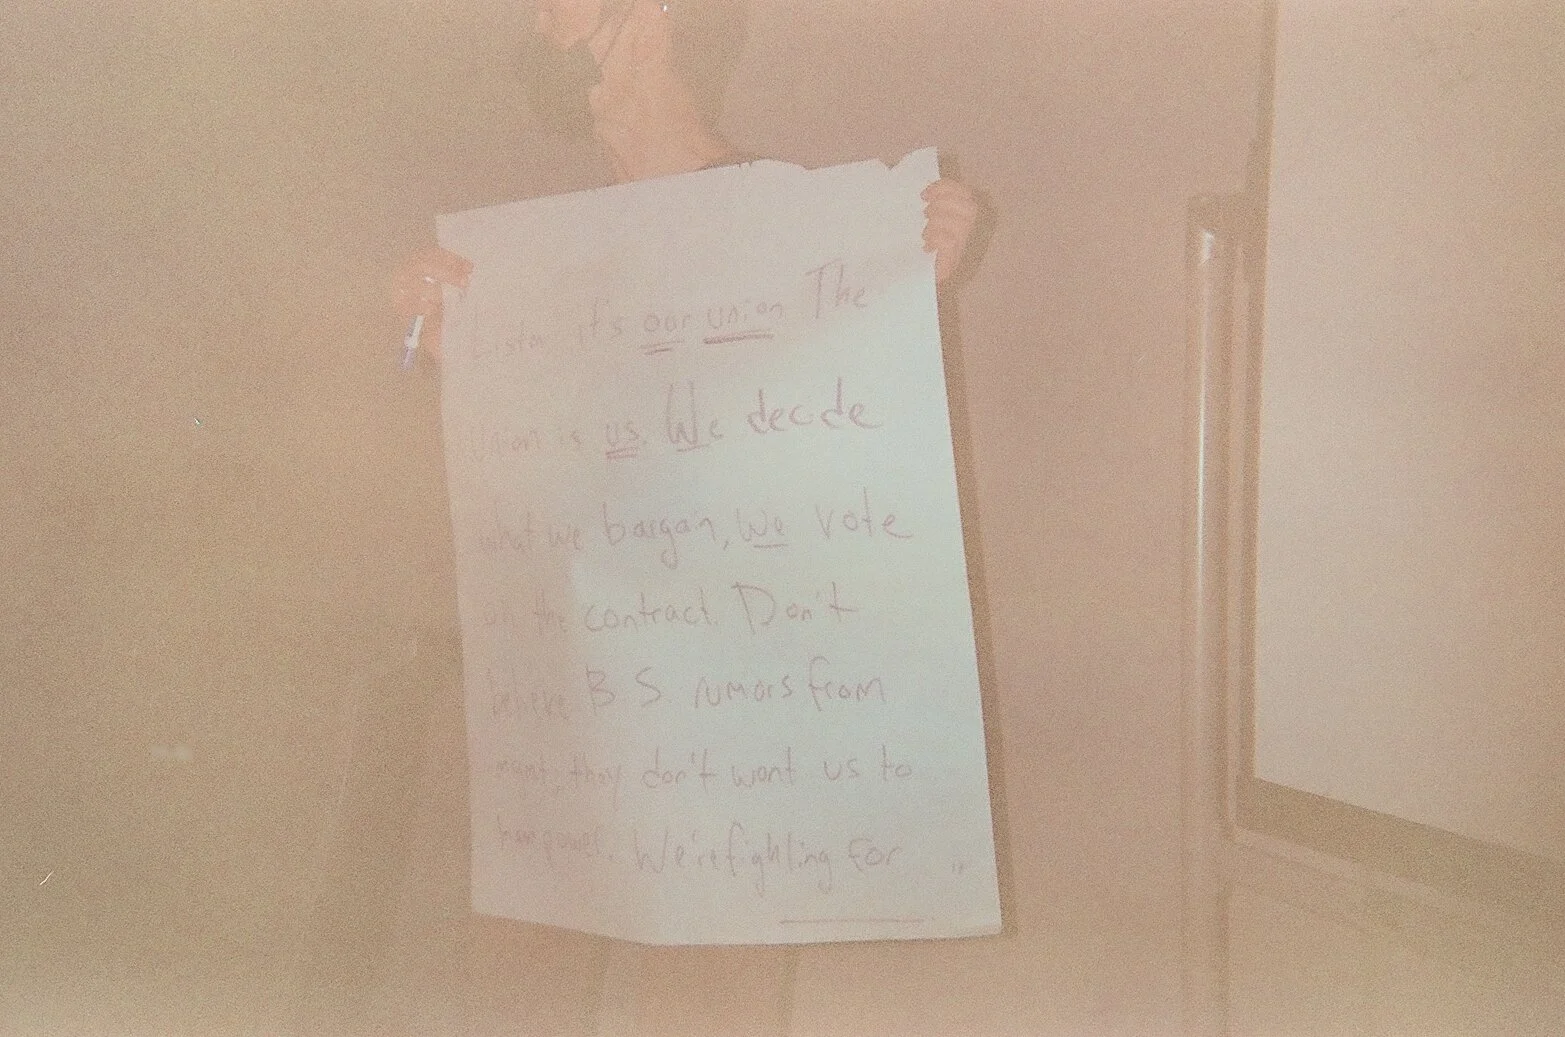 Listen it's our union. The
union is us. We decide
what we bargan, we vote
on the contract. Don't
believe B S rumors from
mgmt, they don't want us to
have power. We're fighting for